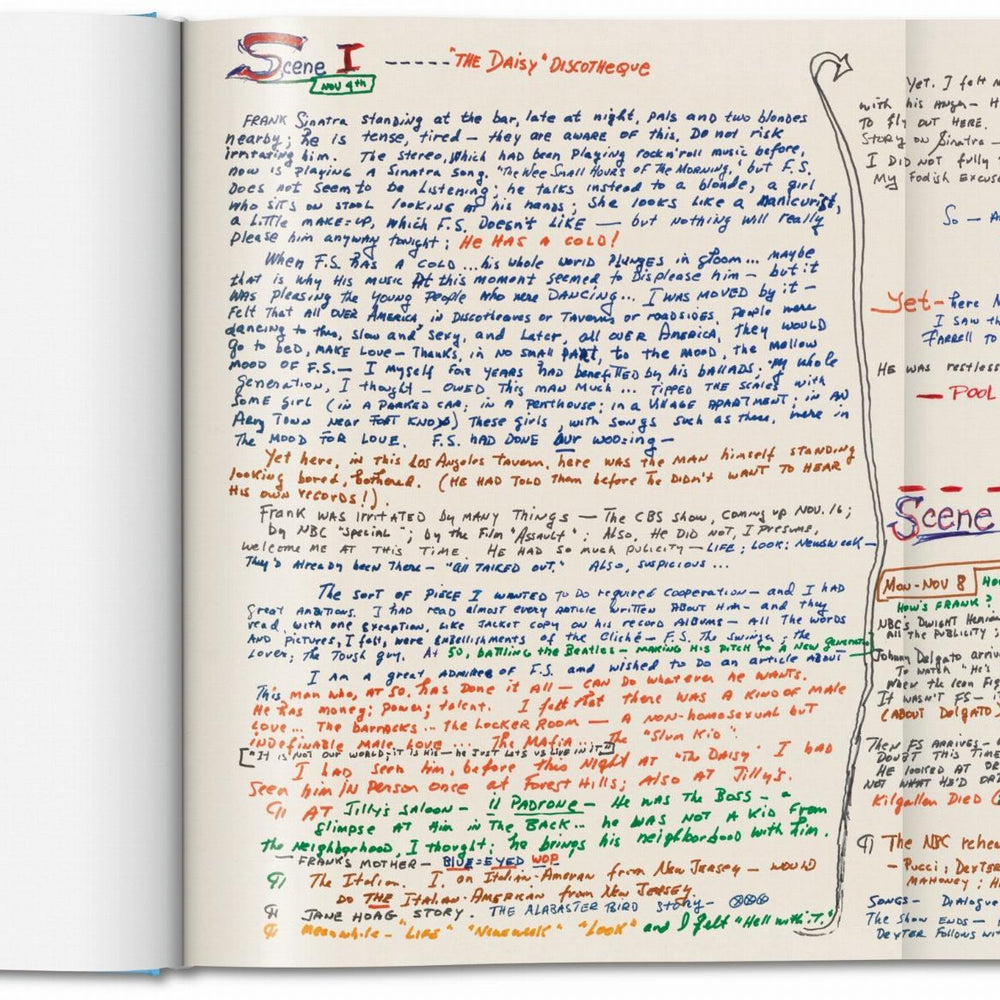 Scene I ----- "THE Daisy" DISCOTHEQUE
NOV 4th
FRANK Sinatra standing at the bar, late at night, pals and two blondes
nearby; he is tense, tired — they are aware of this. Do not risk
irritating him. The stereo, which had been playing rock n' roll music before,
now is playing a Sinatra song. "The Wee Small Hours of The Morning," but F.S.
Does not seem to be listening; he talks instead to a blonde, a girl
who sits on stool looking at his hands; she looks like a manicurist,
a little make-up, which F.S. Doesn't LIKE — but nothing will really
please him anyway tonight; HE HAS A COLD!
When F.S. HAS A COLD... his whole world plunges in gloom... maybe
that is why His music At this moment seemed to Displease him — but it
was pleasing the young people who were DANCING... I was moved by it —
Felt that all over America, in Discotheques or Taverns or roadsides, People were
dancing to this, slow and sexy, and Later, all over America, they would
go to bed, MAKE Love — Thanks, in no small part, to the mood, the mellow
MOOD OF F.S. — I myself for years had benefitted by his ballads; my whole
Generation, I thought — owed This man Much ... Tipped the scales with
some girl (in a parked car; in a Penthouse; in a Village Apartment; in an
Army Town near Fort Knox) These girls, with songs such as these, were in
The MOOD FOR LOVE. F.S. HAD DONE our wooing —
Yet here, in this Los Angeles Tavern, here was the MAN himself STANDING
looking bored, bothered. (HE HAD TOLD Them before he Didn't WANT TO HEAR
His own records!).
Frank WAS IrritATED by MANY Things — The CBS show, coming up NOV. 16;
by NBC "special"; by the Film "Assault"; Also, He DID NOT, I Presume,
welcome ME AT THIS TIME. HE HAD so much publicity — LIFE; LOOK; Newsweek —
They'd Already been There — "all talked out." Also, suspicious ...
The sort OF piece I wanted to Do required cooperation — and I HAD
Great Ambitions. I had read almost every article written about Him — and they
read, with one exception, like Jacket copy on his record Albums — All The words
AND pictures, I felt, were embellishments of the Cliché — F.S. The swinger; the
Lover; The Tough guy. At 50, battling the Beatles — making His pitch to a New generation
I AM a great ADMIRER of F.S. and wished to Do an article about
This man who, at 50, has Done it All — CAN Do whatever he WANTS.
He has money; power; talent. I felt that there was a KIND of male
Love... The barracks... The Locker Room — A non-homosexual but
indefinable male love.... The Mafia... The "Slum Kid".
["It is not our world; it is his — he just lets us live in it"]
I had seen him, before this Night AT "The Daisy". I had
Seen him in Person once at Forest Hills; Also AT Jilly's.
¶ AT Jilly's saloon — Il Padrone — He was The Boss — a
Glimpse AT him in The BACK... he was NOT A KID From
the Neighborhood, I thought; he brings his neighborhood with him.
— FRANK'S MOTHER — BLUE-EYED WOP
¶ The Italian. I, an Italian-Ameran from New Jersey — would
DO THE Italian-American from New Jersey.
¶ JANE HOAG STORY. THE ALABASTER BIRD story —
¶ Meanwhile — "LIFE" "Newsweek" "Look" and I felt "Hell with it."
Yet. I felt
with his anger —
To fly out HERE.
Story on Sinatra —
I DID NOT fully
My Foolish Excuse
So —
Yet — here
I saw
FARRELL TO
HE was restless
— POOL
Scene
Mon-NOV 8
How's FRANK?
NBC's Dwight
All the publicity;
Johnny Delgato
To watch "He's
When the lean
It WASN'T FS —
(ABOUT Delgato
Then FS ARRIVES —
Doubt THIS TIME
HE looked AT
NOT WHAT HE'D
Kilgallen Died
¶ The NBC
— Pucci; Dexter
MAHONEY;
SONGS — Dialogue
The Show ENDS —
Dexter Follows